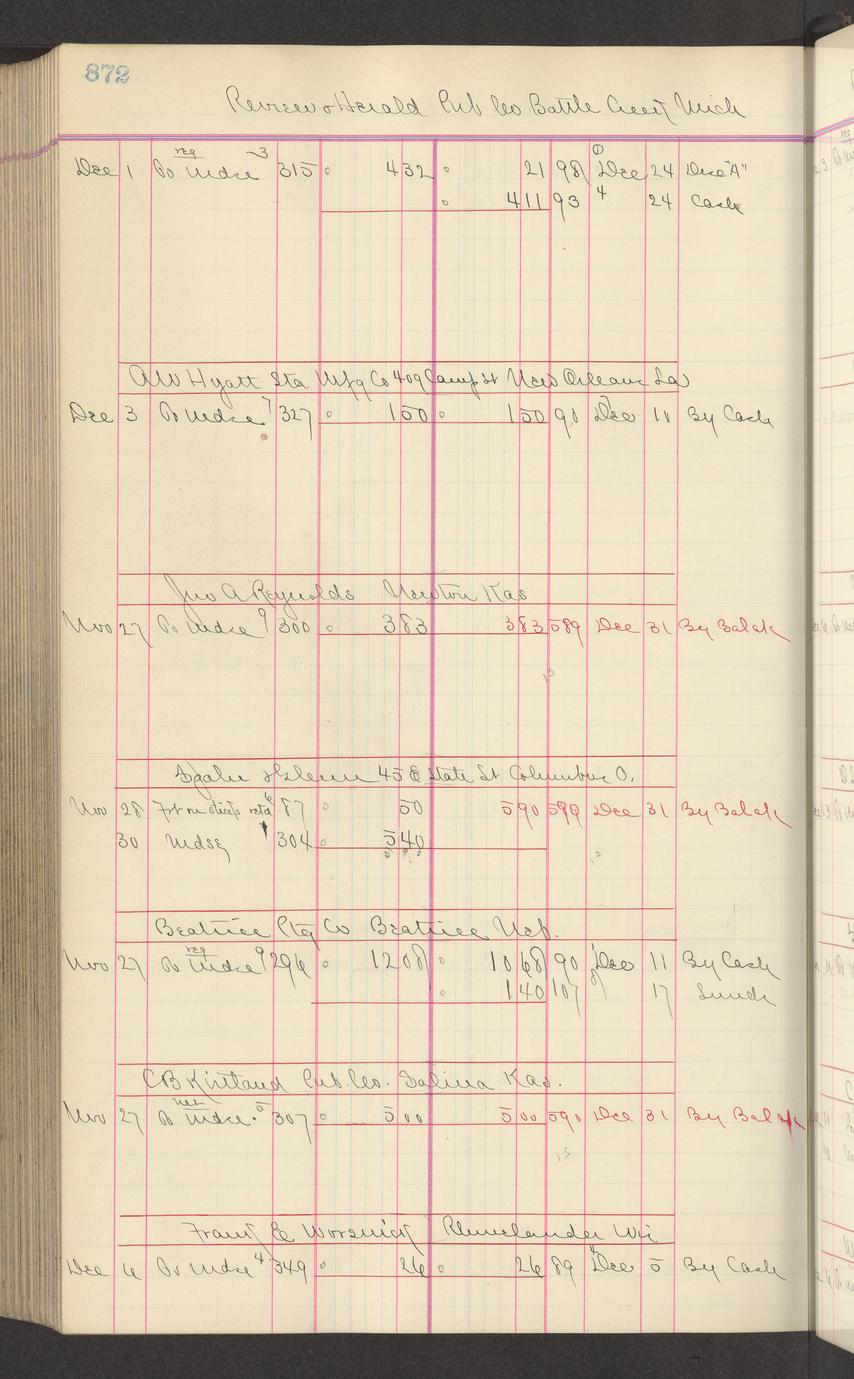 872
Review & Herald Pub Co Battle Creek Mich
Dec 1 To Mdse reg 3 315 432 21 98 Dec 24 Disc "A"
411 93 4 24 Cash
AW Hyatt Sta Mfg Co 409 Camp St New Orleans La
Dec 3 To Mdse 7 327 150 150 90 Dec 11 By Cash
Jno A Reynolds Newton Kas
Nov 27 To Mdse 9 300 383 383 589 Dec 31 By Balak
& Glenn 45 E State St Columbus O.
Nov 28 Frt on retd 87 50 590 590 Dec 31 By Balak
30 Mdse 304 540
Beatrice Ptg Co Beatrice Neb.
Nov 27 To Mdse reg 9 296 1208 1068 90 Dec 11 By Cash
140 107 17 Sunds
CB Kirtland Pub. Co. Salina Kas.
Nov 27 To Mdse net 5 307 500 500 590 Dec 31 By Balak
Frank E Worsnick Rhinelander Wis
Dec 6 To Mdse 4 349 26 26 89 Dec 5 By Cash